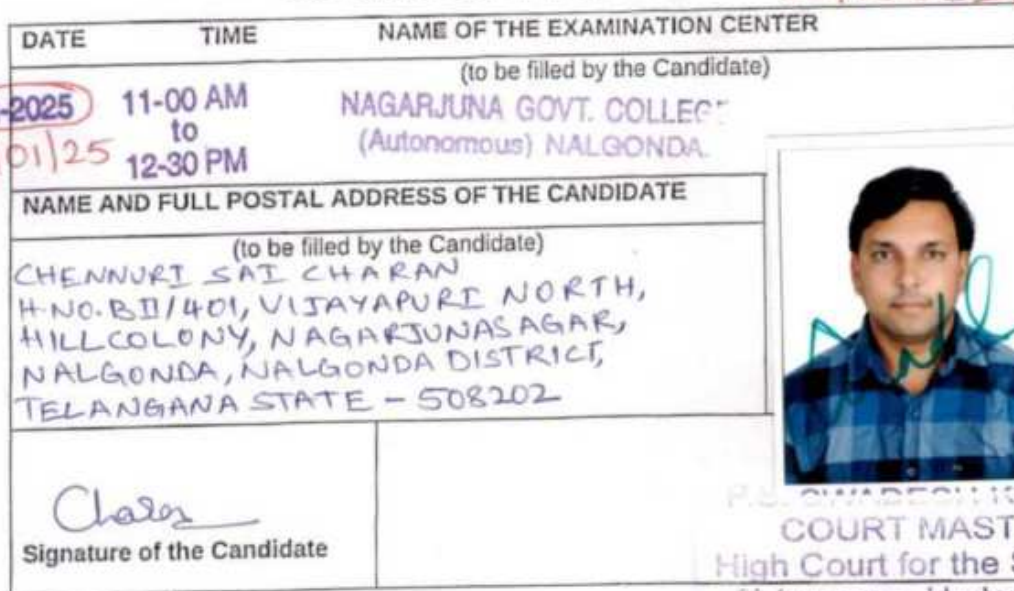 DATE TIME NAME OF THE EXAMINATION CENTER
(to be filled by the Candidate)
-2025 11-00 AM NAGARJUNA GOVT. COLLEG
01/25 to (Autonomous) NALGONDA.
12-30 PM
NAME AND FULL POSTAL ADDRESS OF THE CANDIDATE
(to be filled by the Candidate)
CHENNURI SAI CHARAN
H.NO.BII/401, VIJAYAPURI NORTH,
HILLCOLONY, NAGARJUNASAGAR,
NALGONDA, NALGONDA DISTRICT,
TELANGANA STATE - 508202
Charan
Signature of the Candidate
COURT MAST
High Court for the S